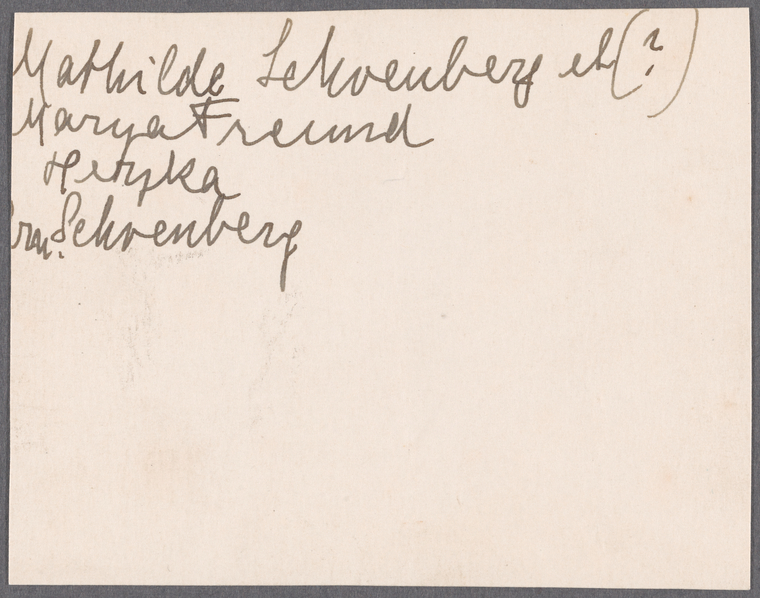 Mathilde Schoenberg et (?)
Marya Freund
Hertzka
Schoenberg